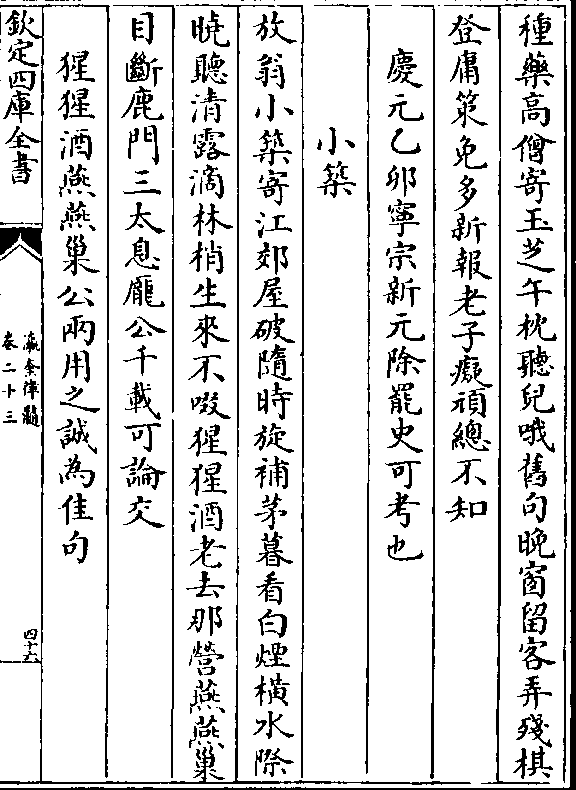 種藥高僧寄玉芝午枕聽兒哦舊句晚窗留客弄殘棋
登庸策免多新報老子癡頑總不知
慶元乙卯寧宗新元除罷史可考也
小築
放翁小築寄江郊屋破隨時旋補茅暮看白煙橫水際
曉聽清露滴林梢生來不啜猩猩酒老去那營燕燕巢
目斷鹿門三太息龐公千載可論交
猩猩酒燕燕巢公兩用之誠為佳句
欽定四庫全書
瀛奎律髓
卷二十三
四十六